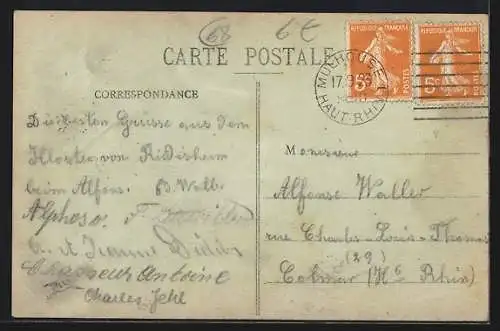 68 6€
CARTE POSTALE
RÉPUBLIQUE FRANÇAISE
5c POSTES
RÉPUBLIQUE FRANÇAISE
5c POSTES
MULHOUSE
HAUT-RHIN
CORRESPONDANCE
Die besten Grüsse aus dem
Kloster von Ridisheim
beim Alfons.
Alphoso.
Jeanne
Chasseur Antoine
Charles Jehl
Monsieur
Alfonse Waller
rue Charles-Louis-Thomas
(29)
Colmar (Ht Rhin)